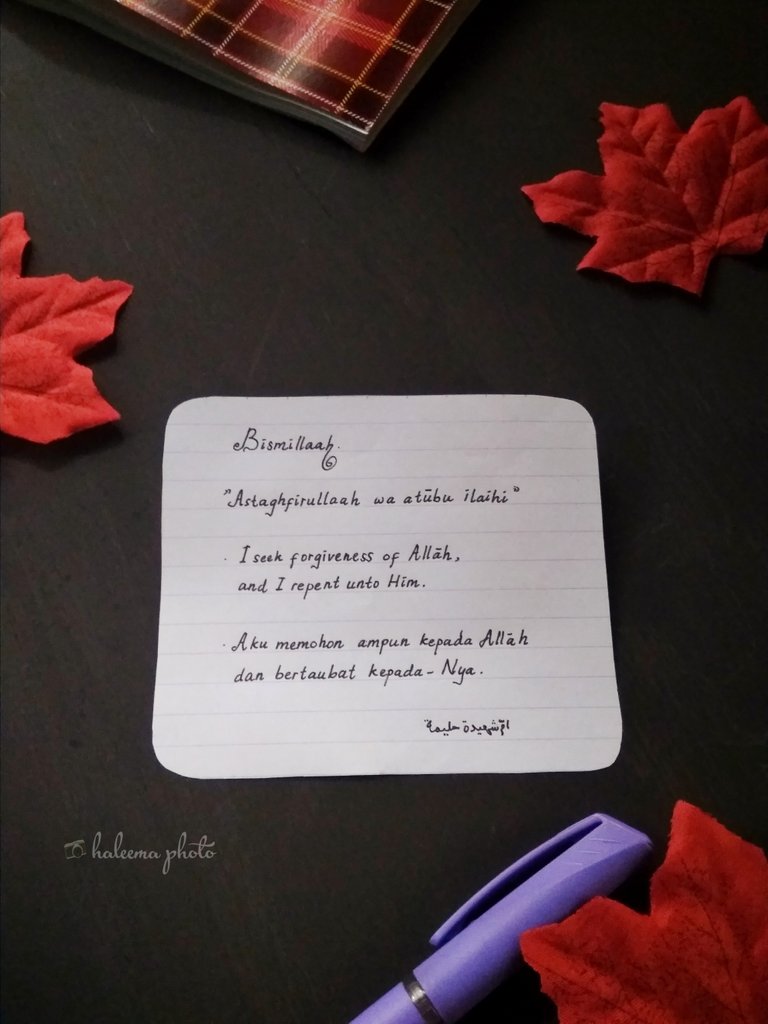 Bismillaah.
"Astaghfirullaah wa atūbu ilaihi"
· I seek forgiveness of Allāh,
and I repent unto Him.
· Aku memohon ampun kepada Allāh
dan bertaubat kepada-Nya.
أم شهيدة حليمة
haleema photo